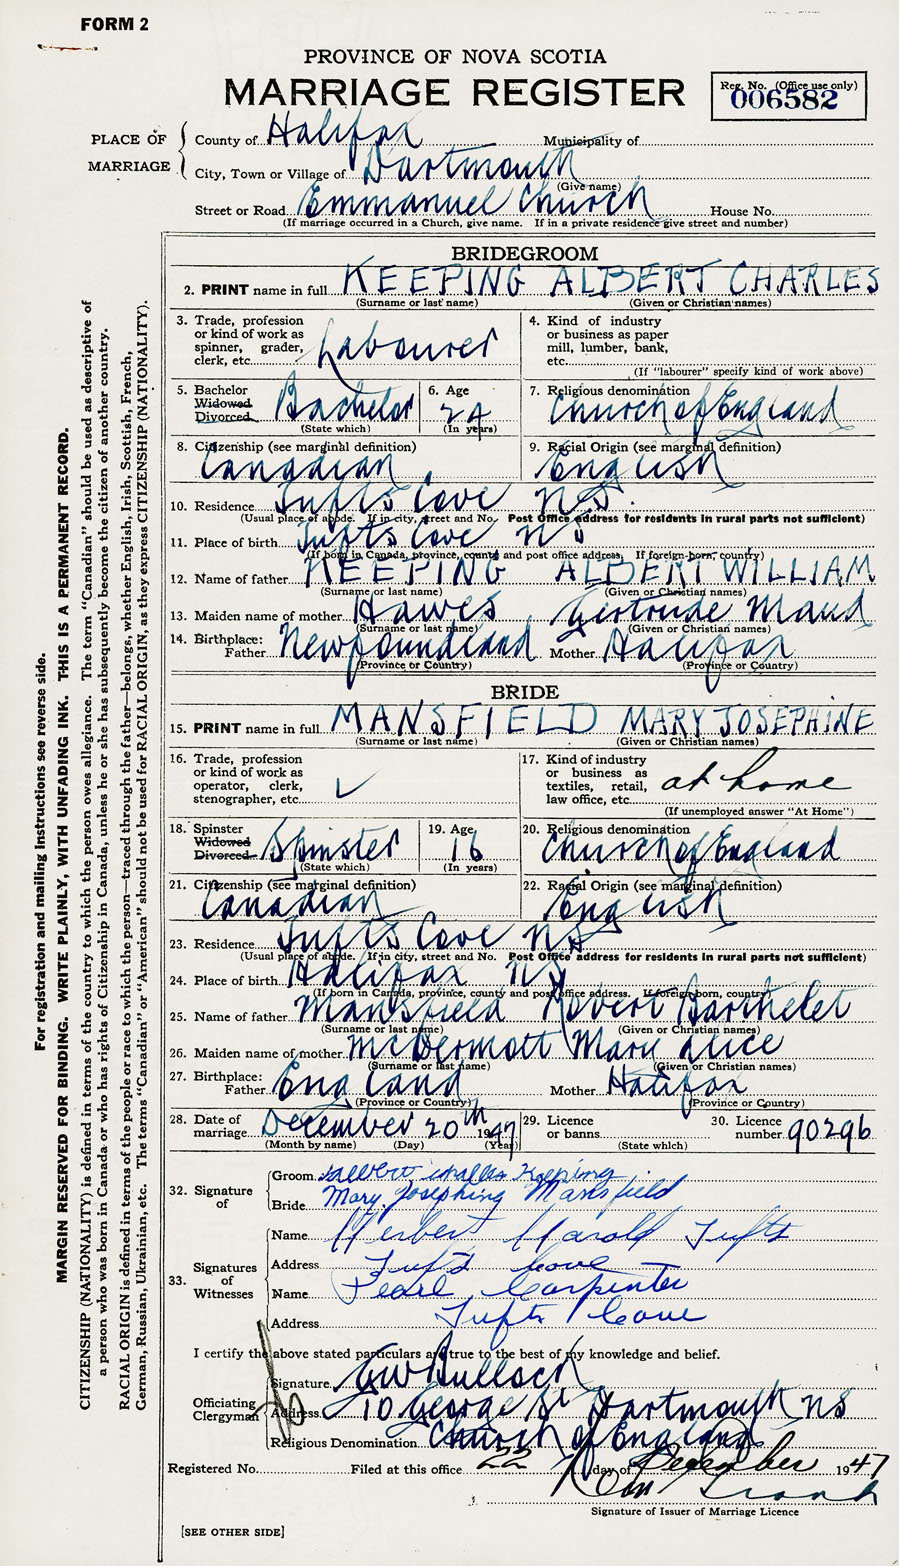 FORM 2
PROVINCE OF NOVA SCOTIA
MARRIAGE REGISTER
Reg. No. (Office use only)
006582
PLACE OF MARRIAGE
County of Halifax Municipality of
City, Town or Village of Dartmouth
(Give name)
Street or Road Emmanuel Church House No.
(If marriage occurred in a Church, give name. If in a private residence give street and number)
BRIDEGROOM
2. PRINT name in full KEEPING ALBERT CHARLES
(Surname or last name) (Given or Christian names)
3. Trade, profession or kind of work as spinner, grader, clerk, etc. Labourer
4. Kind of industry or business as paper mill, lumber, bank, etc.
(If "labourer" specify kind of work above)
5. Bachelor Widowed Divorced Bachelor
(State which)
6. Age 24
(In years)
7. Religious denomination
Church of England
8. Citizenship (see marginal definition)
Canadian
9. Racial Origin (see marginal definition)
English
10. Residence Tufts Cove NS
(Usual place of abode. If in city, street and No. Post Office address for residents in rural parts not sufficient)
11. Place of birth Tufts Cove NS
(If born in Canada, province, county and post office address. If foreign-born, country)
12. Name of father KEEPING ALBERT WILLIAM
(Surname or last name) (Given or Christian names)
13. Maiden name of mother Hawes Gertrude Maud
(Surname or last name) (Given or Christian names)
14. Birthplace: Father Newfoundland Mother Halifax
(Province or Country) (Province or Country)
BRIDE
15. PRINT name in full MANSFIELD MARY JOSEPHINE
(Surname or last name) (Given or Christian names)
16. Trade, profession or kind of work as operator, clerk, stenographer, etc. ✓
17. Kind of industry or business as textiles, retail, law office, etc. at home
(If unemployed answer "At Home")
18. Spinster Widowed Divorced Spinster
(State which)
19. Age 16
(In years)
20. Religious denomination
Church of England
21. Citizenship (see marginal definition)
Canadian
22. Racial Origin (see marginal definition)
English
23. Residence Tufts Cove NS
(Usual place of abode. If in city, street and No. Post Office address for residents in rural parts not sufficient)
24. Place of birth Halifax NS
(If born in Canada, province, county and post office address. If foreign-born, country)
25. Name of father Mansfield Robert Barthelet
(Surname or last name) (Given or Christian names)
26. Maiden name of mother McDermott Mary Alice
(Surname or last name) (Given or Christian names)
27. Birthplace: Father England Mother Halifax
(Province or Country) (Province or Country)
28. Date of marriage December 20th 1947
(Month by name) (Day) (Year)
29. Licence or banns
(State which)
30. Licence number 90296
32. Signature of
Groom Albert Charles Keeping
Bride Mary Josephine Mansfield
33. Signatures of Witnesses
Name Herbert Harold Tufts
Address Tufts Cove
Name Pearl Carpenter
Address Tufts Cove
I certify the above stated particulars are true to the best of my knowledge and belief.
Officiating Clergyman
Signature GW Bullock
Address 10 George St Dartmouth NS
Religious Denomination Church of England
Registered No. Filed at this office 22 day of December 1947
Signature of Issuer of Marriage Licence
[SEE OTHER SIDE]
For registration and mailing instructions see reverse side.
MARGIN RESERVED FOR BINDING. WRITE PLAINLY, WITH UNFADING INK. THIS IS A PERMANENT RECORD.
CITIZENSHIP (NATIONALITY) is defined in terms of the country to which the person owes allegiance. The term "Canadian" should be used as descriptive of
a person who was born in Canada or who has rights of Citizenship in Canada, unless he or she has subsequently become the citizen of another country.
RACIAL ORIGIN is defined in terms of the people or race to which the person—traced through the father—belongs, whether English, Irish, Scottish, French,
German, Russian, Ukrainian, etc. The terms "Canadian" or "American" should not be used for RACIAL ORIGIN, as they express CITIZENSHIP (NATIONALITY).